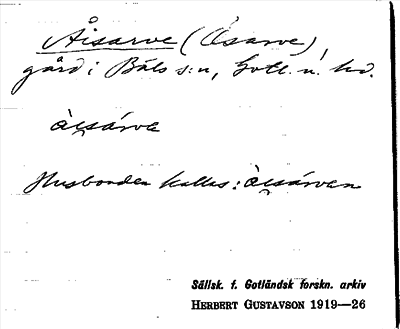 Åisarve (Åsarve),
gård i Bäls s:n, Gotl. n. hd.
àisárva
Husbonden kallas: àisárven
Sällsk. f. Gotländsk forskn. arkiv
HERBERT GUSTAVSON 1919—26